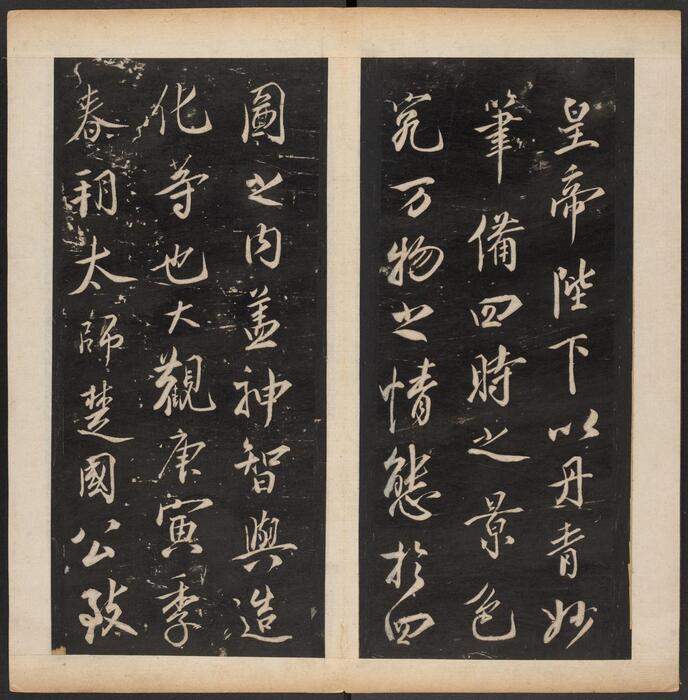 皇帝陛下以丹青妙
筆備四時之景色
究万物之情態扵四
圖之内盖神智與造
化等也大觀庚寅季
春朔太師楚國公致